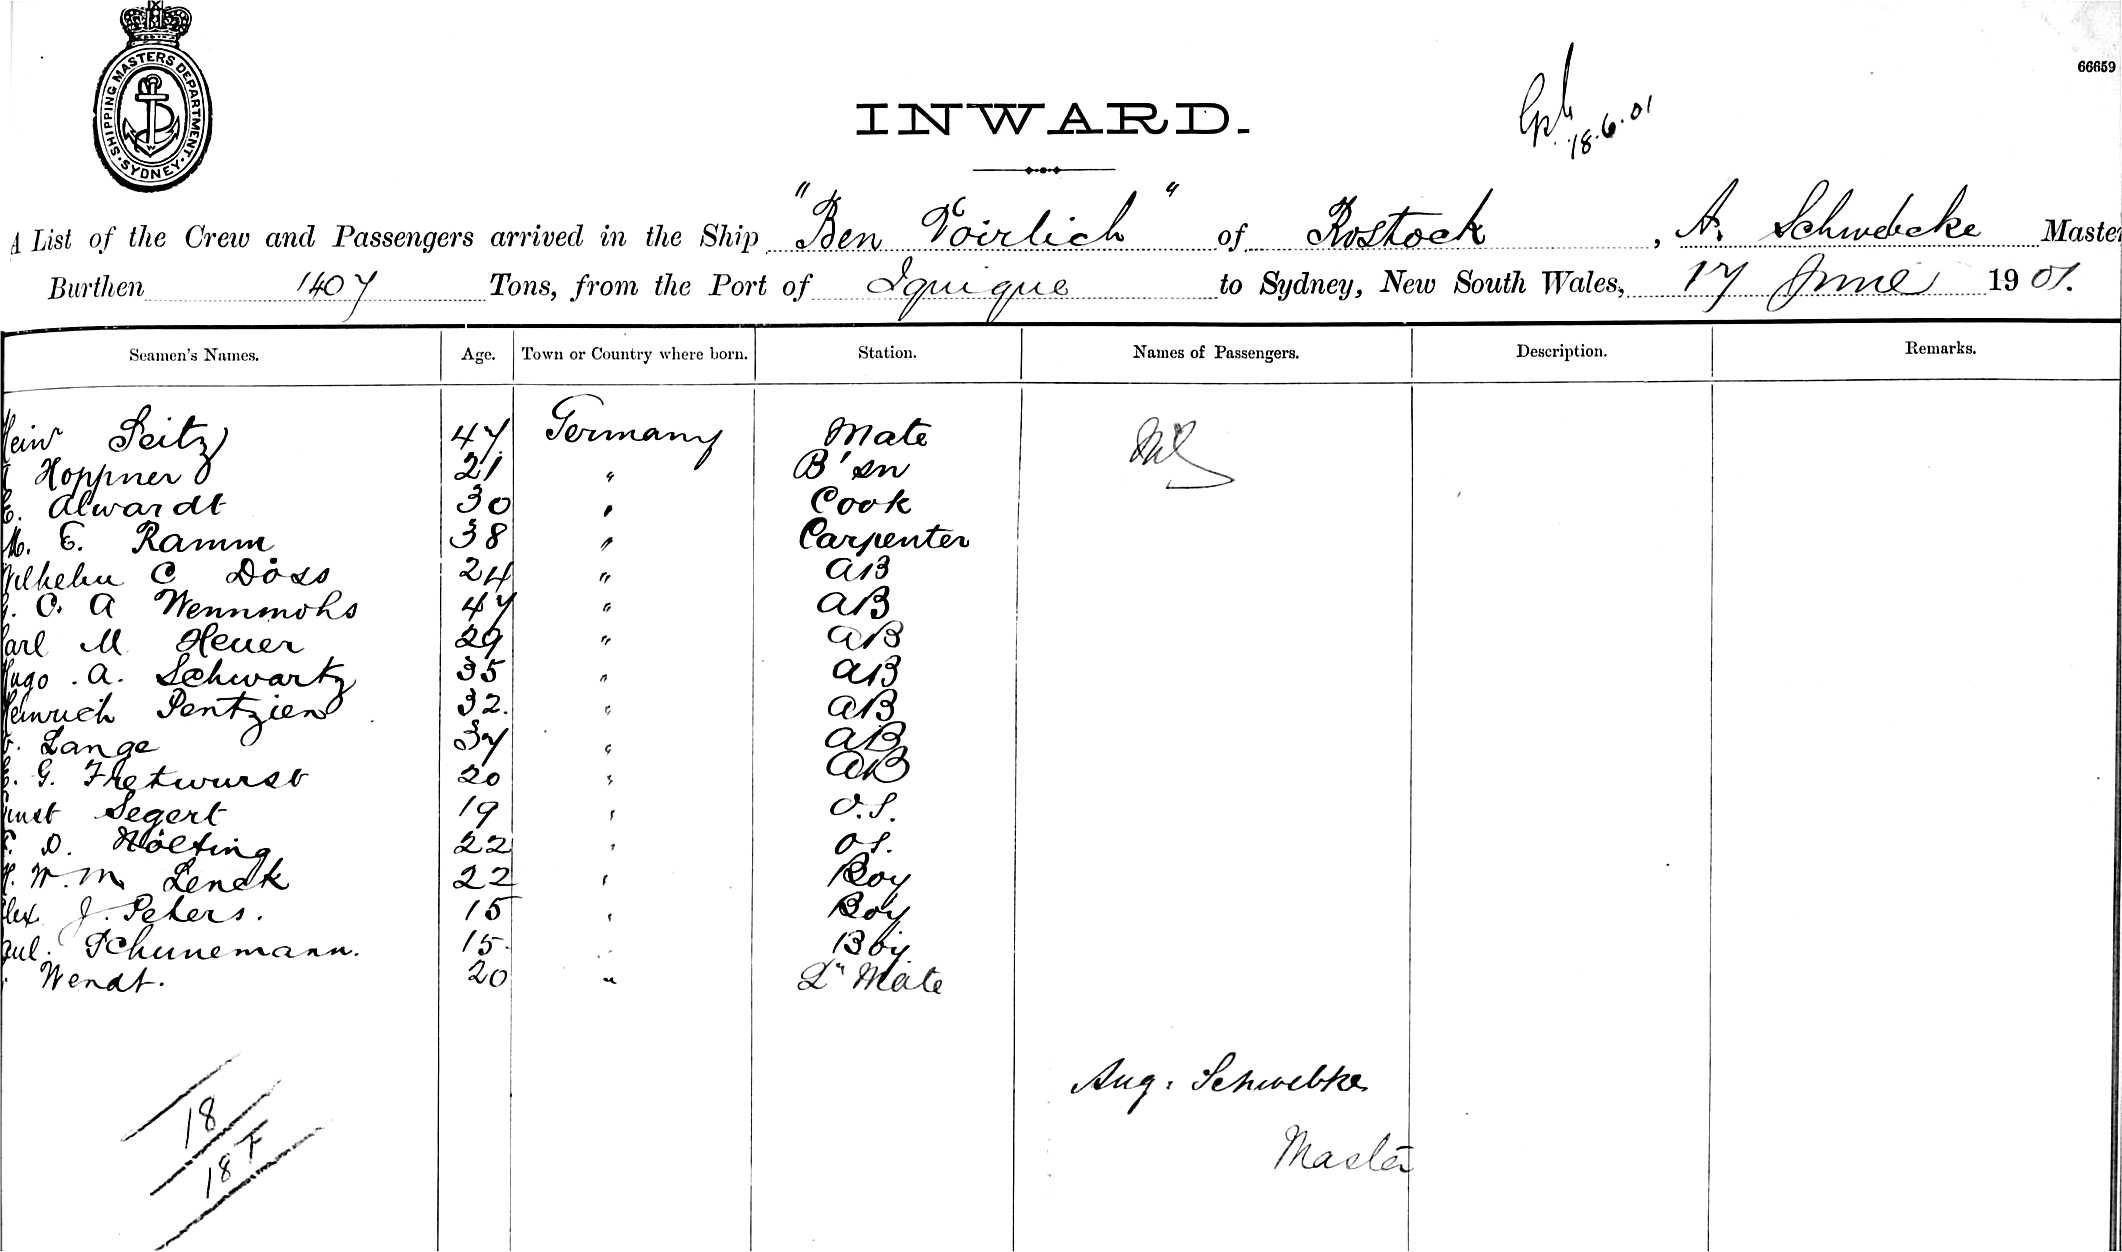 SHIPPING MASTERS DEPARTMENT. SYDNEY.
66659
INWARD.
18.6.01
A List of the Crew and Passengers arrived in the Ship "Ben Voirlich" of Rostock, A. Schwebcke Master
Burthen 1407 Tons, from the Port of Iquique to Sydney, New South Wales, 17 June 1901.
Seamen's Names. Age. Town or Country where born. Station. Names of Passengers. Description. Remarks.
Heinr Seitz 47 Germany Mate Nil
Hoppner 21 " B'sn
Alwardt 30 " Cook
M. E. Ramm 38 " Carpenter
Wilhelm C Döss 24 " AB
C. A Wennmohs 47 " AB
Carl M Heuer 29 " AB
Hugo . A. Schwartz 35 " AB
Heinrich Pentzien 32. " AB
Lange 37 " AB
G. Fretwurst 20 " AB
Ernst Segert 19 " O.S.
D. Nölting 22 " OS.
W. M. Lenck 22 " Boy
Alex J. Peters. 15 " Boy
Paul. Schunemann. 15. " Boy
Wendt. 20 " 2n Mate
Aug. Schwebke
Master
18
18 F